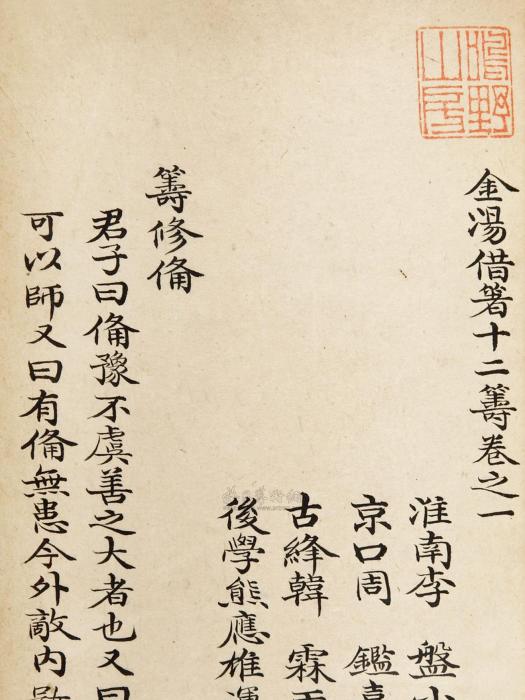 金湯借箸十二籌卷之一
淮南李　盤小
京口周　鑑
古絳韓　霖
後學熊應雄運
籌修俻
君子曰俻豫不虞善之大者也又曰
可以師又曰有俻無患今外敵内